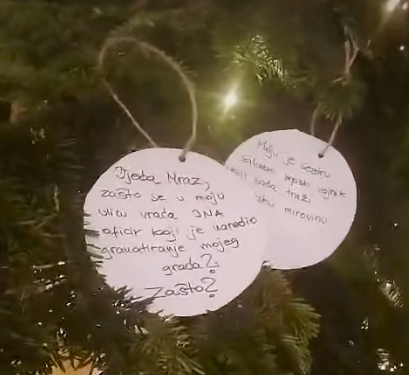 Djeda Mraz,
zašto se u moju
ulicu vraća JNA
oficir koji je naredio
granatiranje mojeg
grada?
Zašto?
Moju je sestru
srpski vojnik
koji sada traži
mirovinu